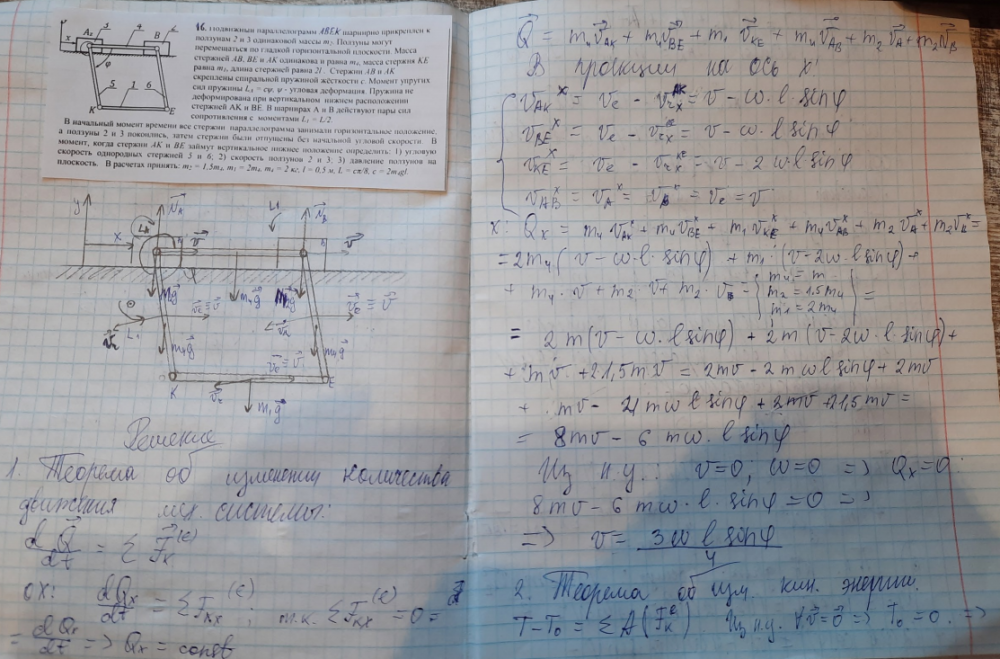 16. Подвижный параллелограмм ABEK шарнирно прикреплен к
ползунам 2 и 3 одинаковой массы m₂. Ползуны могут
перемещаться по гладкой горизонтальной плоскости. Масса
стержней AB, BE и AK одинакова и равна m₄, масса стержня KE
равна m₁, длина стержней равна 2l. Стержни AB и AK
скреплены спиральной пружиной жёсткости c. Момент упругих
сил пружины Lₖ = cφ, φ - угловая деформация. Пружина не
деформирована при вертикальном нижнем расположении
стержней AK и BE. В шарнирах A и B действуют пары сил
сопротивления с моментами L₁ = L/2.
В начальный момент времени все стержни параллелограмма занимали горизонтальное положение,
а ползуны 2 и 3 покоились, затем стержни были отпущены без начальной угловой скорости. В
момент, когда стержни AK и BE займут вертикальное нижнее положение определить: 1) угловую
скорость однородных стержней 5 и 6; 2) скорость ползунов 2 и 3; 3) давление ползунов на
плоскость. В расчетах принять: m₂ = 1,5m₄, m₁ = 2m₄, m₄ = 2 кг, l = 0,5 м, L = cπ/8, c = 2m₄gl.
x
A
3
4
B
2
5
1
6
K
E
y
x
L1
K
E
m₁g
Решение
1. Теорема об изменении количества
движения мех. системы:
dQ/dt = Σ Fₖ⁽ᵉ⁾
OX: dQx/dt = ΣFₖₓ⁽ᵉ⁾, т.к. ΣFₖₓ⁽ᵉ⁾ = 0 =
= dQx/dt => Qx = const
Q = m₄vAK + m₄vBE + m₁vKE + m₄vAB + m₂vA + m₂vB
В проекции на ось x:
vAKˣ = ve - vrxᴬᴷ = v - ω·l·sinφ
vBEˣ = ve - vrxᴮᴱ = v - ω·l sinφ
vKEˣ = ve - vrxᴷᴱ = v - 2ω·l sinφ
vABˣ = vAˣ = vBˣ = ve = v
x: Qx = m₄vAKˣ + m₄vBEˣ + m₁vKEˣ + m₄vABˣ + m₂vAˣ + m₂vBˣ =
= 2m₄(v - ω·l·sinφ) + m₁·(v - 2ω·l·sinφ) +
+ m₄·v + m₂·v + m₂·v = { m₄ = m m₂ = 1.5m₄ m₁ = 2m₄ } =
= 2m(v - ω·l sinφ) + 2m(v - 2ω·l sinφ) +
+ mv + 2·1,5m·v = 2mv - 2mωl sinφ + 2mv
+ mv - 4mωl sinφ + 2·1,5mv =
= 8mv - 6mω·l sinφ
Из н.у.: v=0, ω=0 => Qx=0
8mv - 6mω·l·sinφ = 0 =>
=> v = 3ωl sinφ/4
2. Теорема об изм. кин. энергии.
T - T₀ = ΣA(Fₖᵉ) Из н.у. v=0 => T₀ = 0 =>